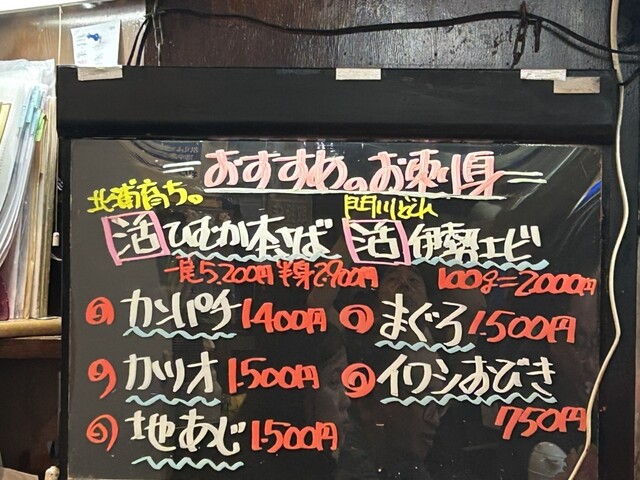 おすすめのお刺身
北浦育ち。
活 ひむか本さば
一尾5,200円 半身2,900円
門川どれ
活 伊勢エビ
100g=2000円
カンパチ 1,400円
まぐろ 1,500円
カツオ 1,500円
イワシおびき 750円
地あじ 1,500円